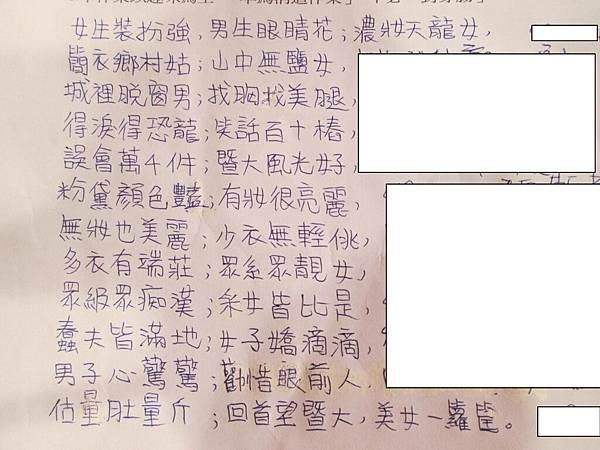 女生裝扮強,男生眼睛花;濃妝天龍女,
簡衣鄉村姑;山中無鹽女,
城裡脫窗男;找胸找美腿,
得淚得恐龍;笑話百十樁,
誤會萬千件;暨大風光好,
粉黛顏色豔;有妝很亮麗,
無妝也美麗;少衣無輕佻,
多衣有端莊;眾系眾靚女,
眾級眾痴漢;采女皆比是,
蠢夫皆滿地;女子嬌滴滴,
男子心驚驚;勸惜眼前人
估量肚量斤;回首望暨大,美女一籮筐。